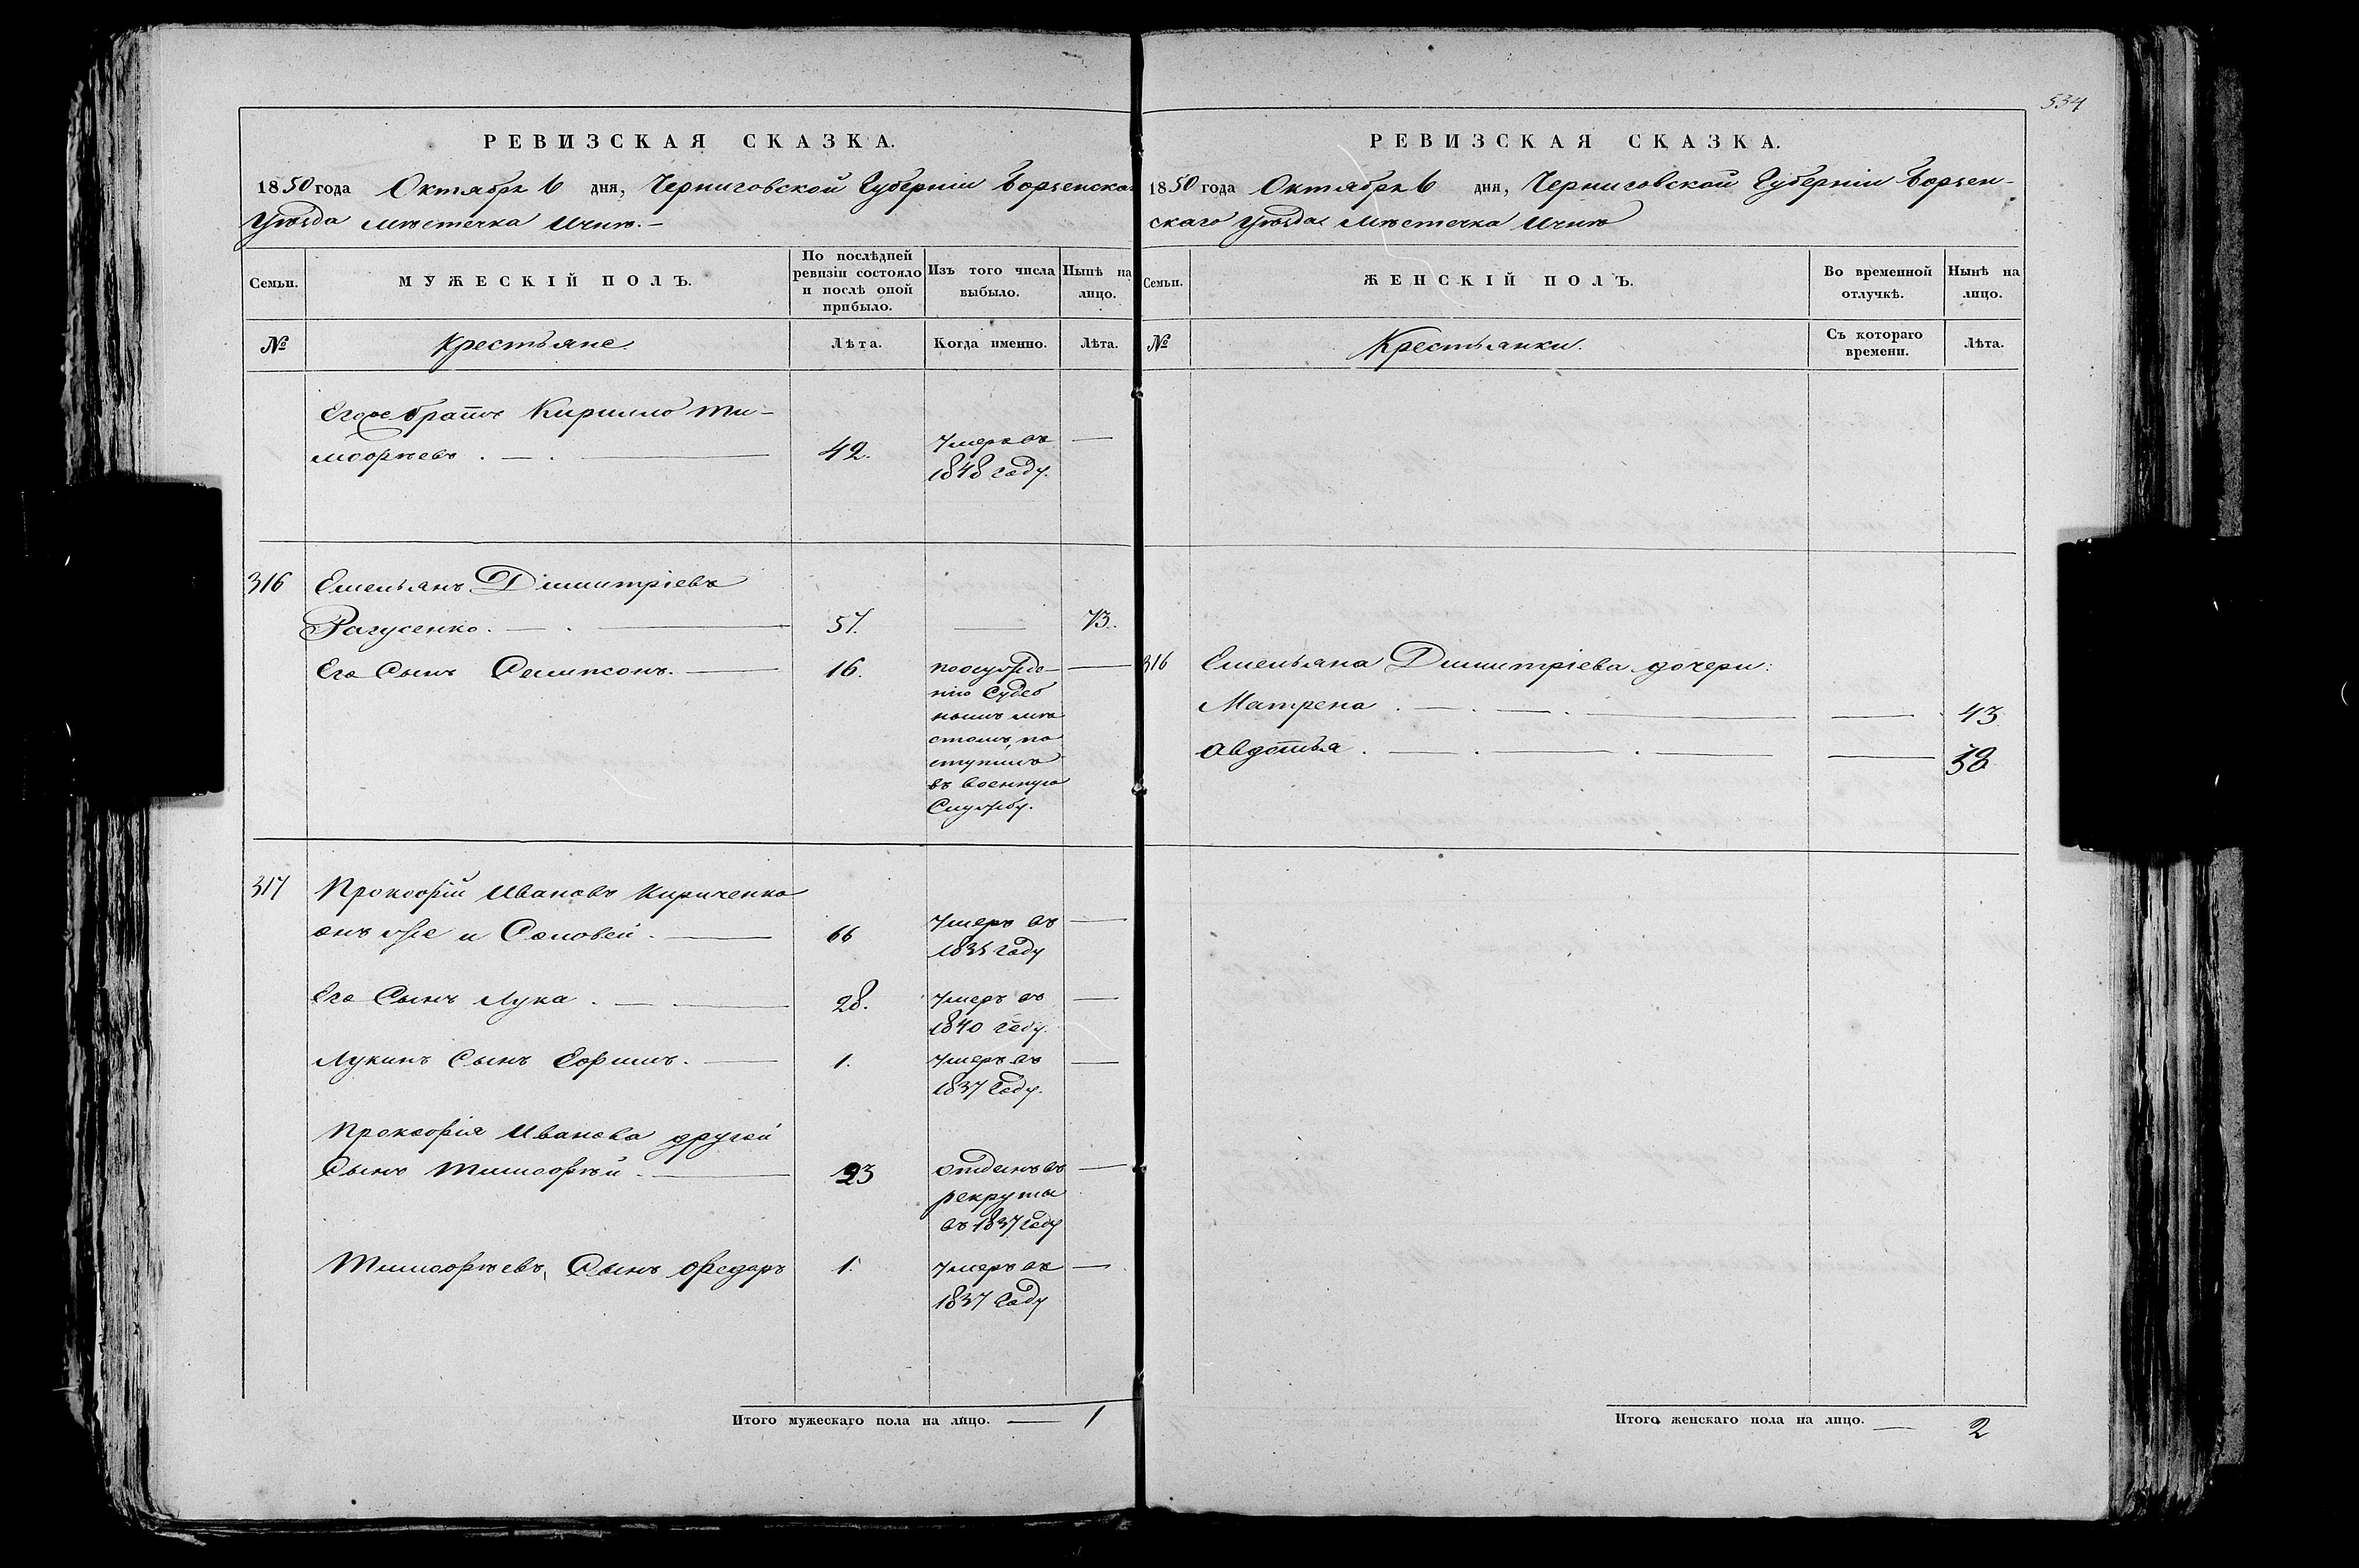 534
РЕВИЗСКАЯ СКАЗКА.
1850 года Октября 6 дня, Черниговской Губерніи Борзенскаго
Уѣзда мѣстечка Ичнѣ.
Семьи.
МУЖЕСКІЙ ПОЛЪ.
По послѣдней
ревизіи состояло
и послѣ оной
прибыло.
Изъ того числа
выбыло.
Нынѣ на
лицо.
№
Крестьяне
Лѣта.
Когда именно.
Лѣта.
Егоже братъ Кирилло Ти-
мофѣевъ . — . — 42. Умеръ въ —
1848 году.
316 Емельянъ Димитріевъ
Рагусенко. — . — 57. — 73.
Его Сынъ Самисонъ. — 16. по осужде- —
нію Судеб
нымъ мѣ
стомъ, по
ступилъ
въ военную
Службу.
317 Прокофій Ивановъ Кириченко
онъ же и Соловей. — 66 Умеръ въ —
1835 году
Его Сынъ Лука . — . — 28. Умеръ въ —
1840 году.
Лукинъ Сынъ Ефимъ. — 1. Умеръ въ —
1837 году.
Прокофія Иванова другой
Сынъ Тимофѣй. — 23 отданъ въ —
рекруты
въ 1837 году
Тимофѣевъ Сынъ Федоръ 1. Умеръ въ —
1837 году
Итого мужескаго пола на лицо. — 1
РЕВИЗСКАЯ СКАЗКА.
1850 года Октября 6 дня, Черниговской Губерніи Борзен-
скаго Уѣзда мѣстечка Ичнѣ
Семьи.
ЖЕНСКІЙ ПОЛЪ.
Во временной
отлучкѣ.
Нынѣ на
лицо.
№
Крестьянки.
Съ котораго
времени.
Лѣта.
316 Емельяна Димитріева дочери:
Матрена . — . — . — — 43
Авдотья . — . — . — — 38
Итого женскаго пола на лицо. — 2